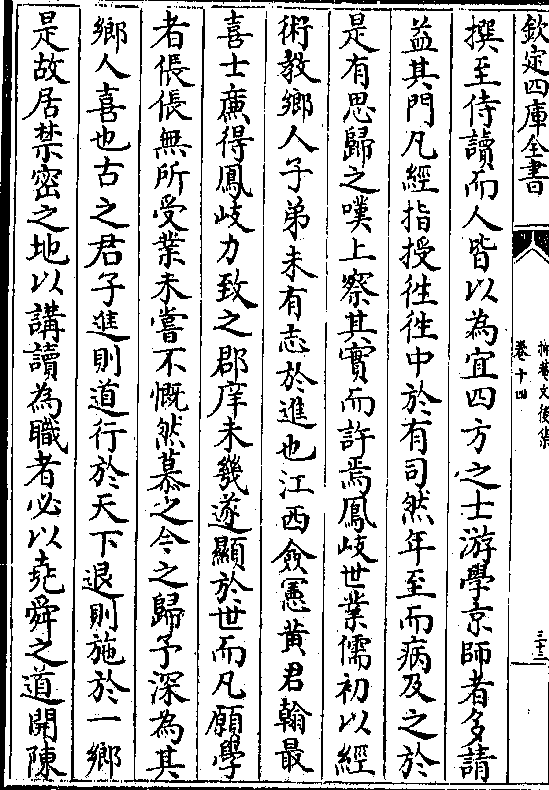 欽定四庫全書
抑菴文後集
卷十四
三十三
撰至侍讀而人皆以為宜四方之士游學京師者多請
益其門凡經指授徃徃中於有司然年至而病及之於
是有思歸之嘆上察其實而許焉鳳岐世業儒初以經
術教鄉人子弟未有志於進也江西僉憲黄君翰最
喜士廉得鳳岐力致之郡庠未幾遂顯於世而凡願學
者倀倀無所受業未嘗不慨然慕之今之歸予深為其
鄉人喜也古之君子進則道行於天下退則施於一鄉
是故居禁密之地以講讀為職者必以堯舜之道開陳